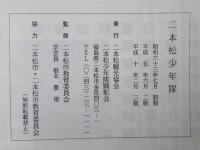 二本松少年隊
昭和六十三年七月 初版
平成 五年六月 二版
平成 十年二月 三版
発行 二本松観光協会
二本松少年隊顕彰会
福島県二本松市金色四〇三―一
監修 二本松市教育委員会
学芸員 根本豊徳
協力 二本松市・二本松市教育委員会
(無断転載禁止)